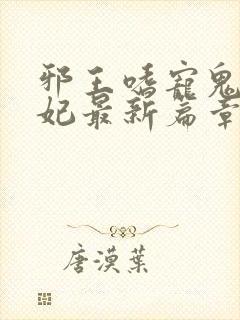 邪王嗜宠鬼
妃最新篇章
唐漠葉